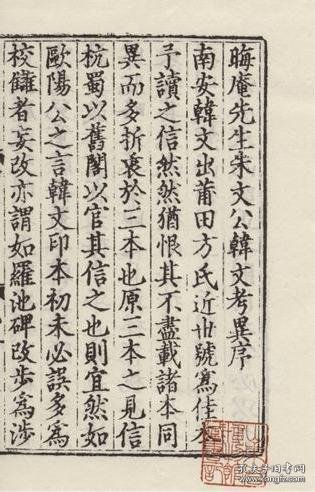 晦庵先生朱文公韓文考異序
南安韓文出莆田方氏近世號爲佳本
予讀之信然然猶恨其不盡載諸本同
異而多折衷於三本也原三本之見信
杭蜀以舊閣以官其信之也則宜然如
歐陽公之言韓文印本初未必誤多爲
校讎者妄改亦謂如羅池碑改步爲涉